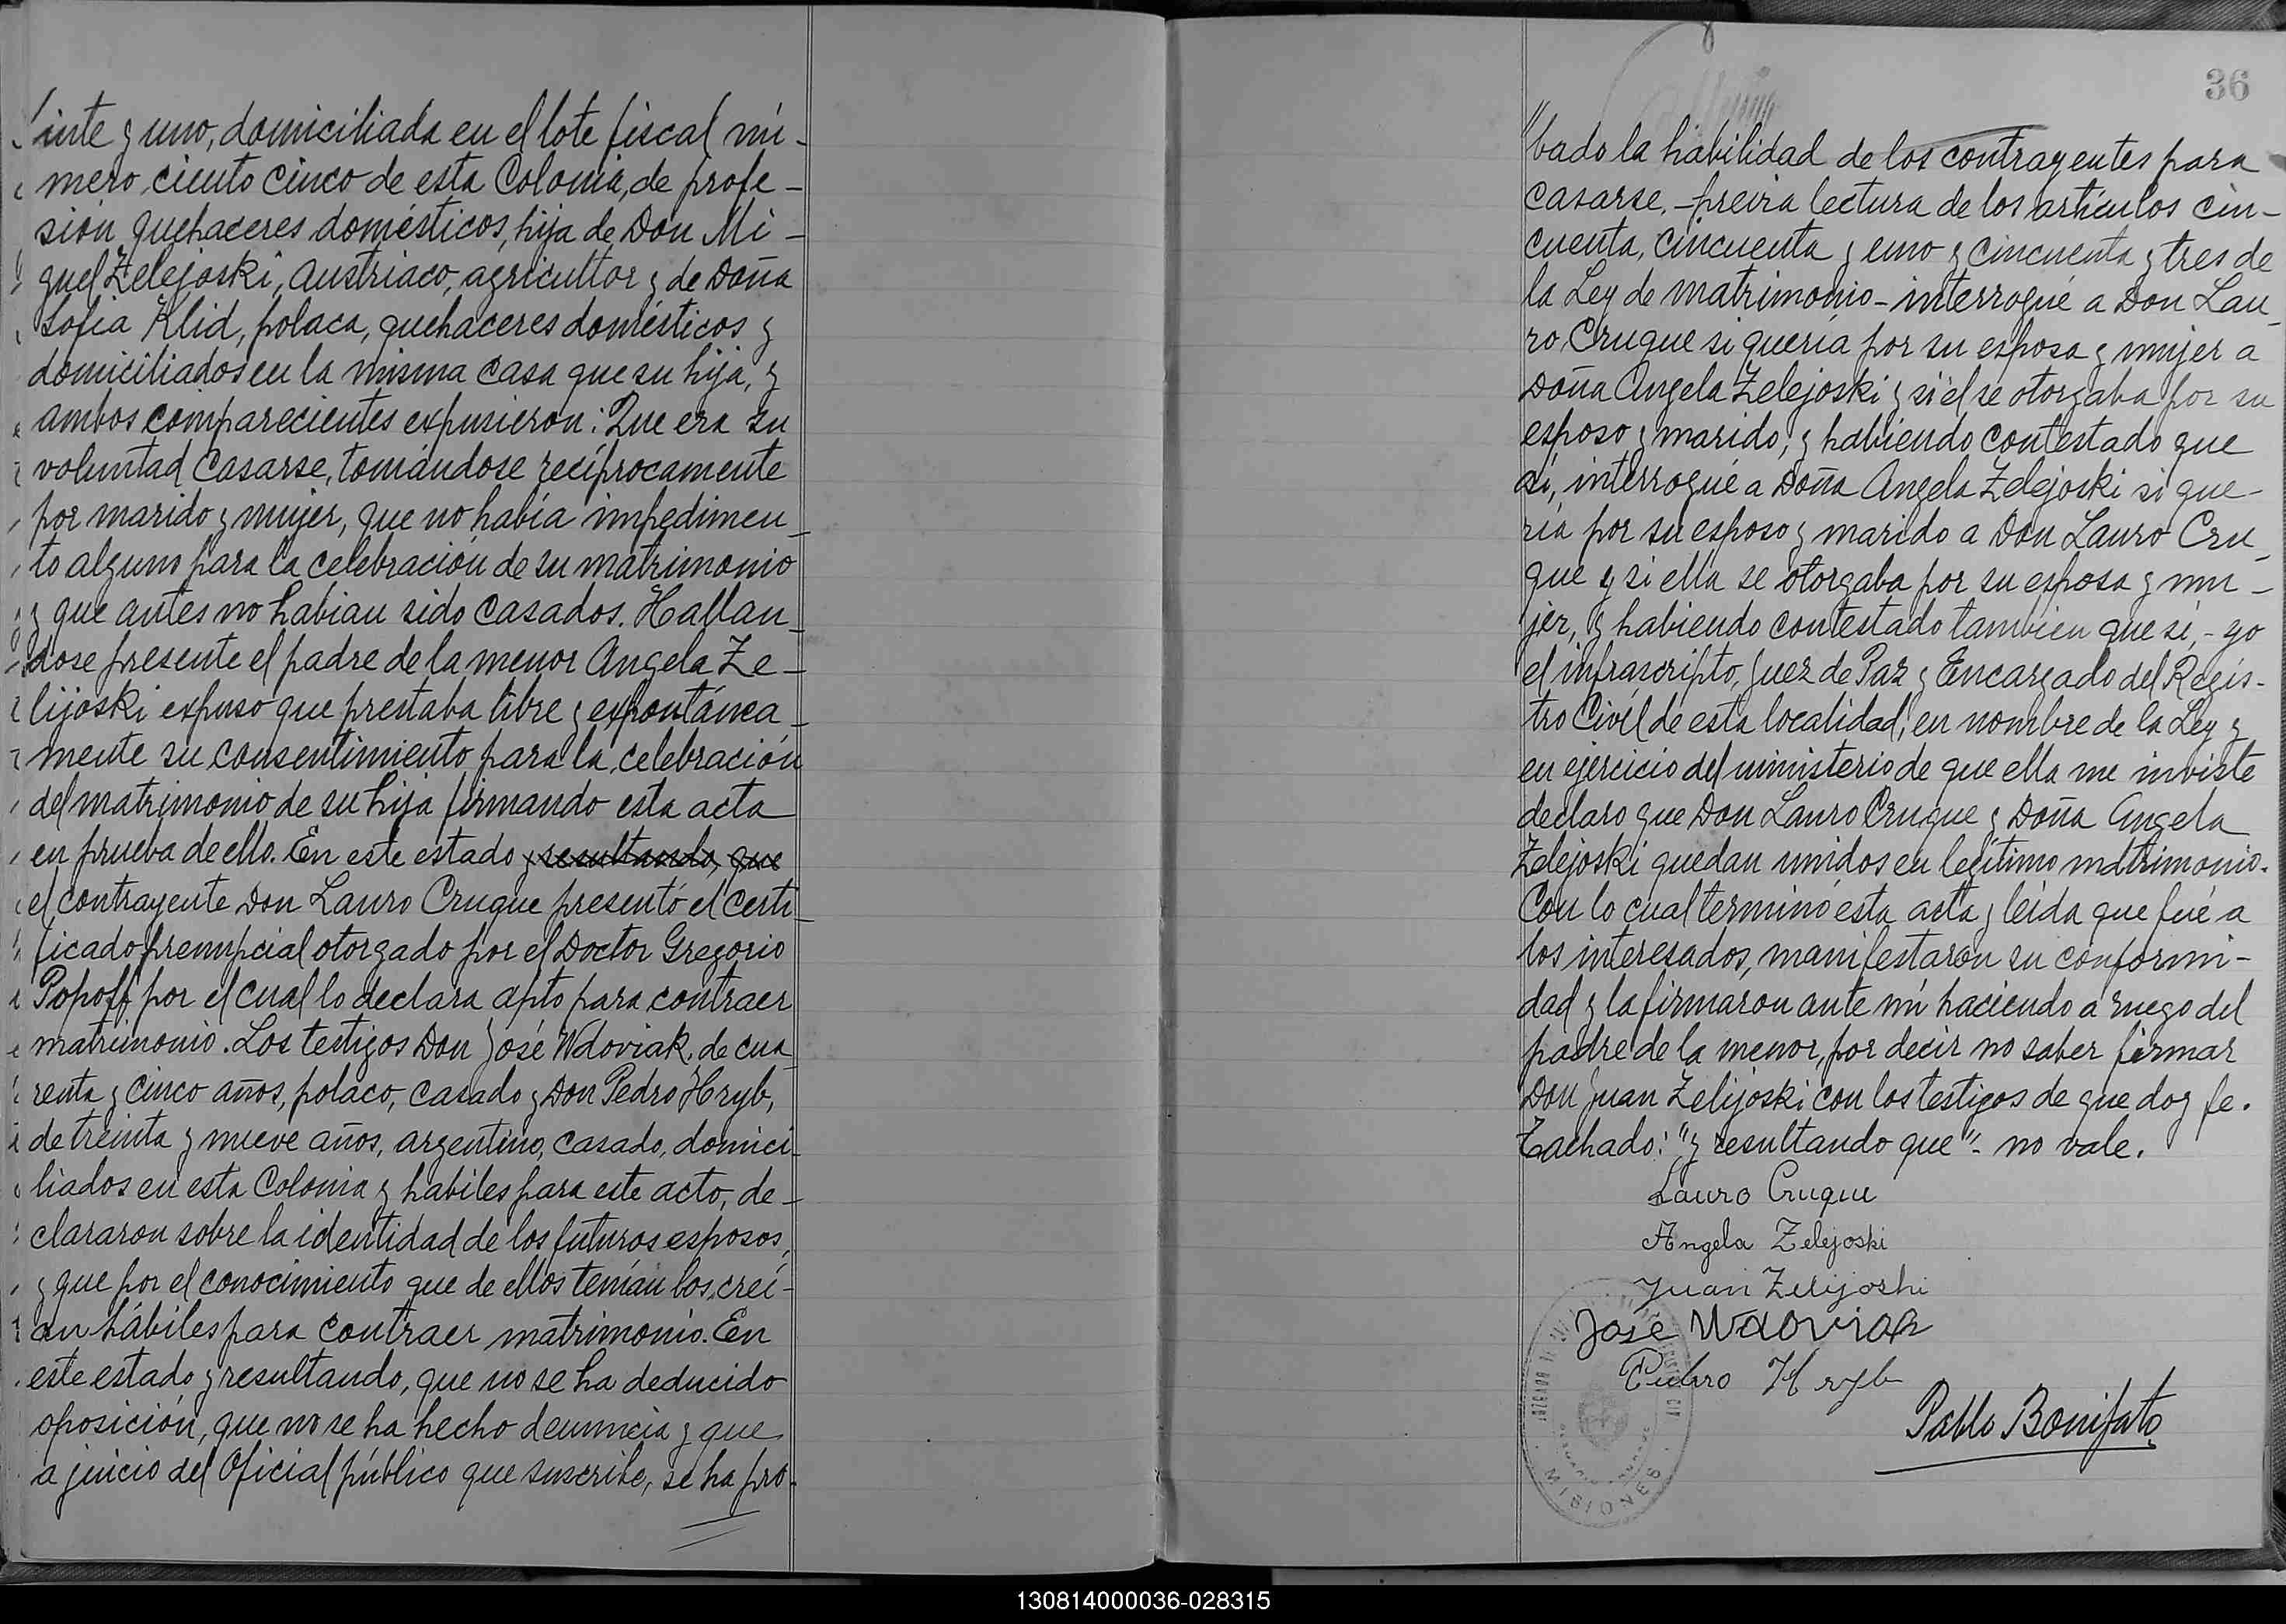 inte y uno, domiciliada en el lote fiscal nú-
mero ciento cinco de esta Colonia, de profe-
sión quehaceres domésticos, hija de Don Mi-
guel Zelejoski, austriaco, agricultor y de Doña
Sofia Klid, polaca, quehaceres domésticos y
domiciliados en la misma casa que su hija, y
ambos comparecientes expusieron: Que era su
voluntad casarse, tomándose recíprocamente
por marido y mujer, que no había impedimen-
to alguno para la celebración de su matrimonio
y que antes no habian sido casados. Hallan-
dose presente el padre de la menor Angela Ze-
lijoski expuso que prestaba libre y expontánea-
mente su consentimiento para la celebración
del matrimonio de su hija firmando esta acta
en prueba de ello. En este estado y resultando, que
el contrayente Don Lauro Cruque presentó el certi-
ficado prenupcial otorgado por el Doctor Gregorio
Popoff por el cual lo declara apto para contraer
matrimonio. Los testigos Don José Wdoviak, de cua-
renta y cinco años, polaco, casado y Don Pedro Hryb,
de treinta y nueve años, argentino, casado, domici-
liados en esta Colonia y habiles para este acto, de-
clararon sobre la identidad de los futuros esposos,
y que por el conocimiento que de ellos tenían los creí-
an hábiles para contraer matrimonio. En
este estado y resultando, que no se ha deducido
oposición, que no se ha hecho denuncia y que
a juicio del Oficial público que suscribe, se ha pro-
36
"bado la habilidad de los contrayentes para
casarse. - previa lectura de los artículos cin-
cuenta, cincuenta y uno y cincuenta y tres de
la Ley de matrimonio - interrogué a Don Lau-
ro Cruque si quería por su esposa y mujer a
Doña Angela Zelejoski y si él se otorgaba por su
esposo y marido; y habiendo contestado que
sí, interrogué a Doña Angela Zelejoski si que-
ría por su esposo y marido a Don Lauro Cru-
que y si ella se otorgaba por su esposa y mu-
jer, y habiendo contestado también que sí, - yo
el infrascripto, Juez de Paz y Encargado del Regis-
tro Civil de esta localidad, en nombre de la Ley y
en ejercicio del ministerio de que ella me inviste
declaro que Don Lauro Cruque y Doña Angela
Zelejoski quedan unidos en legítimo matrimonio.
Con lo cual terminó esta acta y leída que fué a
los interesados, manifestaron su conformi-
dad y la firmaron ante mí haciendo a ruego del
padre de la menor, por decir no saber firmar
Don Juan Zelijoski con los testigos de que doy fe.
Tachado: "y resultando que" - no vale.
Lauro Cruque
Angela Zelejoski
Juan Zelijoski
José Wdoviak
Pedro Hryb
Pablo Bonifato
MISIONES
130814000036-028315